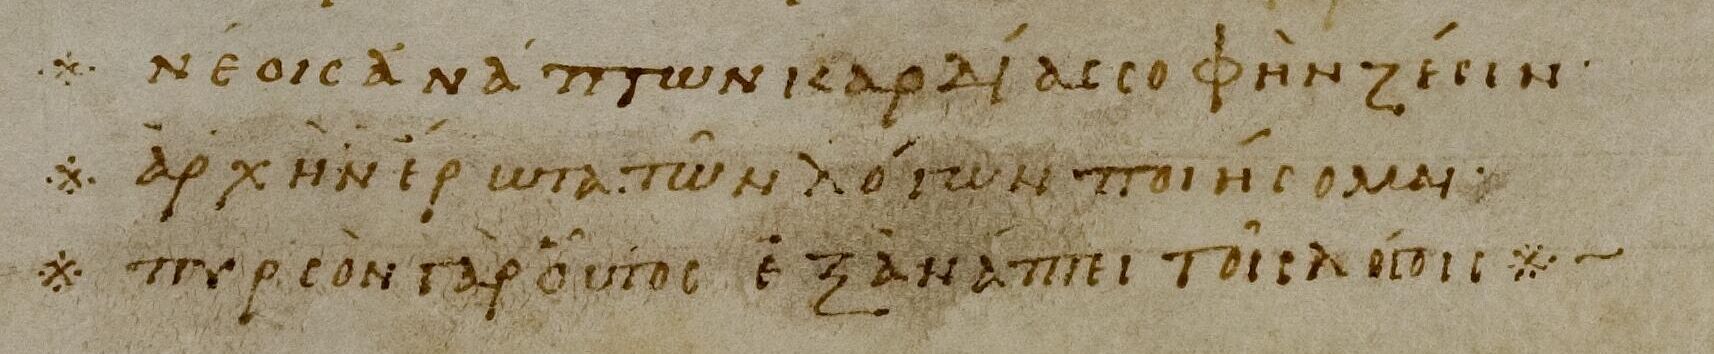 ※ νέοις ἀνάπτων καρδίας σοφὴν ζέσιν·
※ ἀρχὴν ἔρωτα τῶν λόγων ποιήσομαι·
※ πυρσὸν γὰρ οὗτος ἐξανάπτει τοῖς λόγοις ※ ~